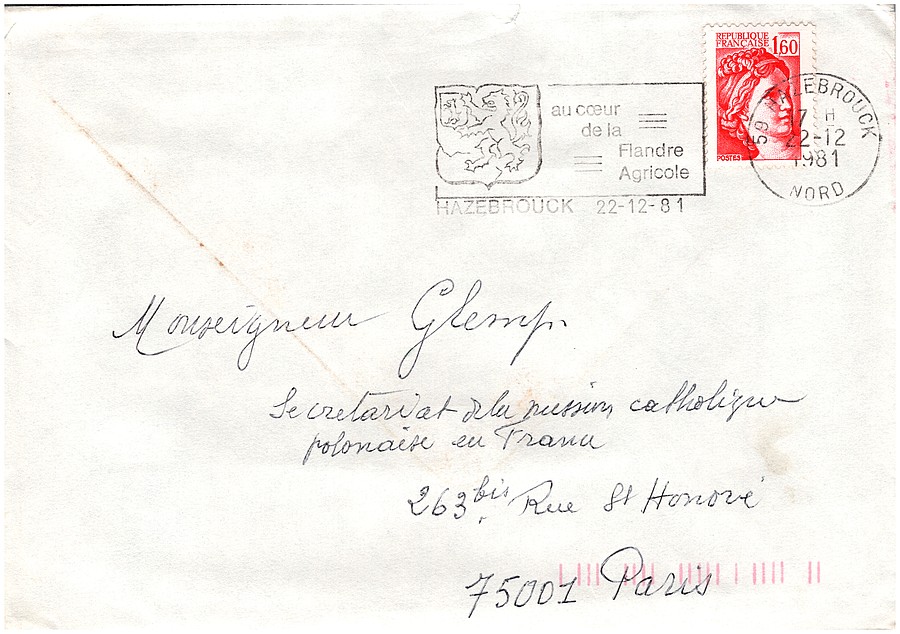 REPUBLIQUE
FRANÇAISE 1,60
POSTES
au cœur
de la
Flandre
Agricole
HAZEBROUCK 22-12-81
59 HAZEBROUCK
17 H
22-12
1981
NORD
Monseigneur Glemp.
Secretariat de la mission catholique
polonaise en France
263 bis Rue St Honoré
75001 Paris